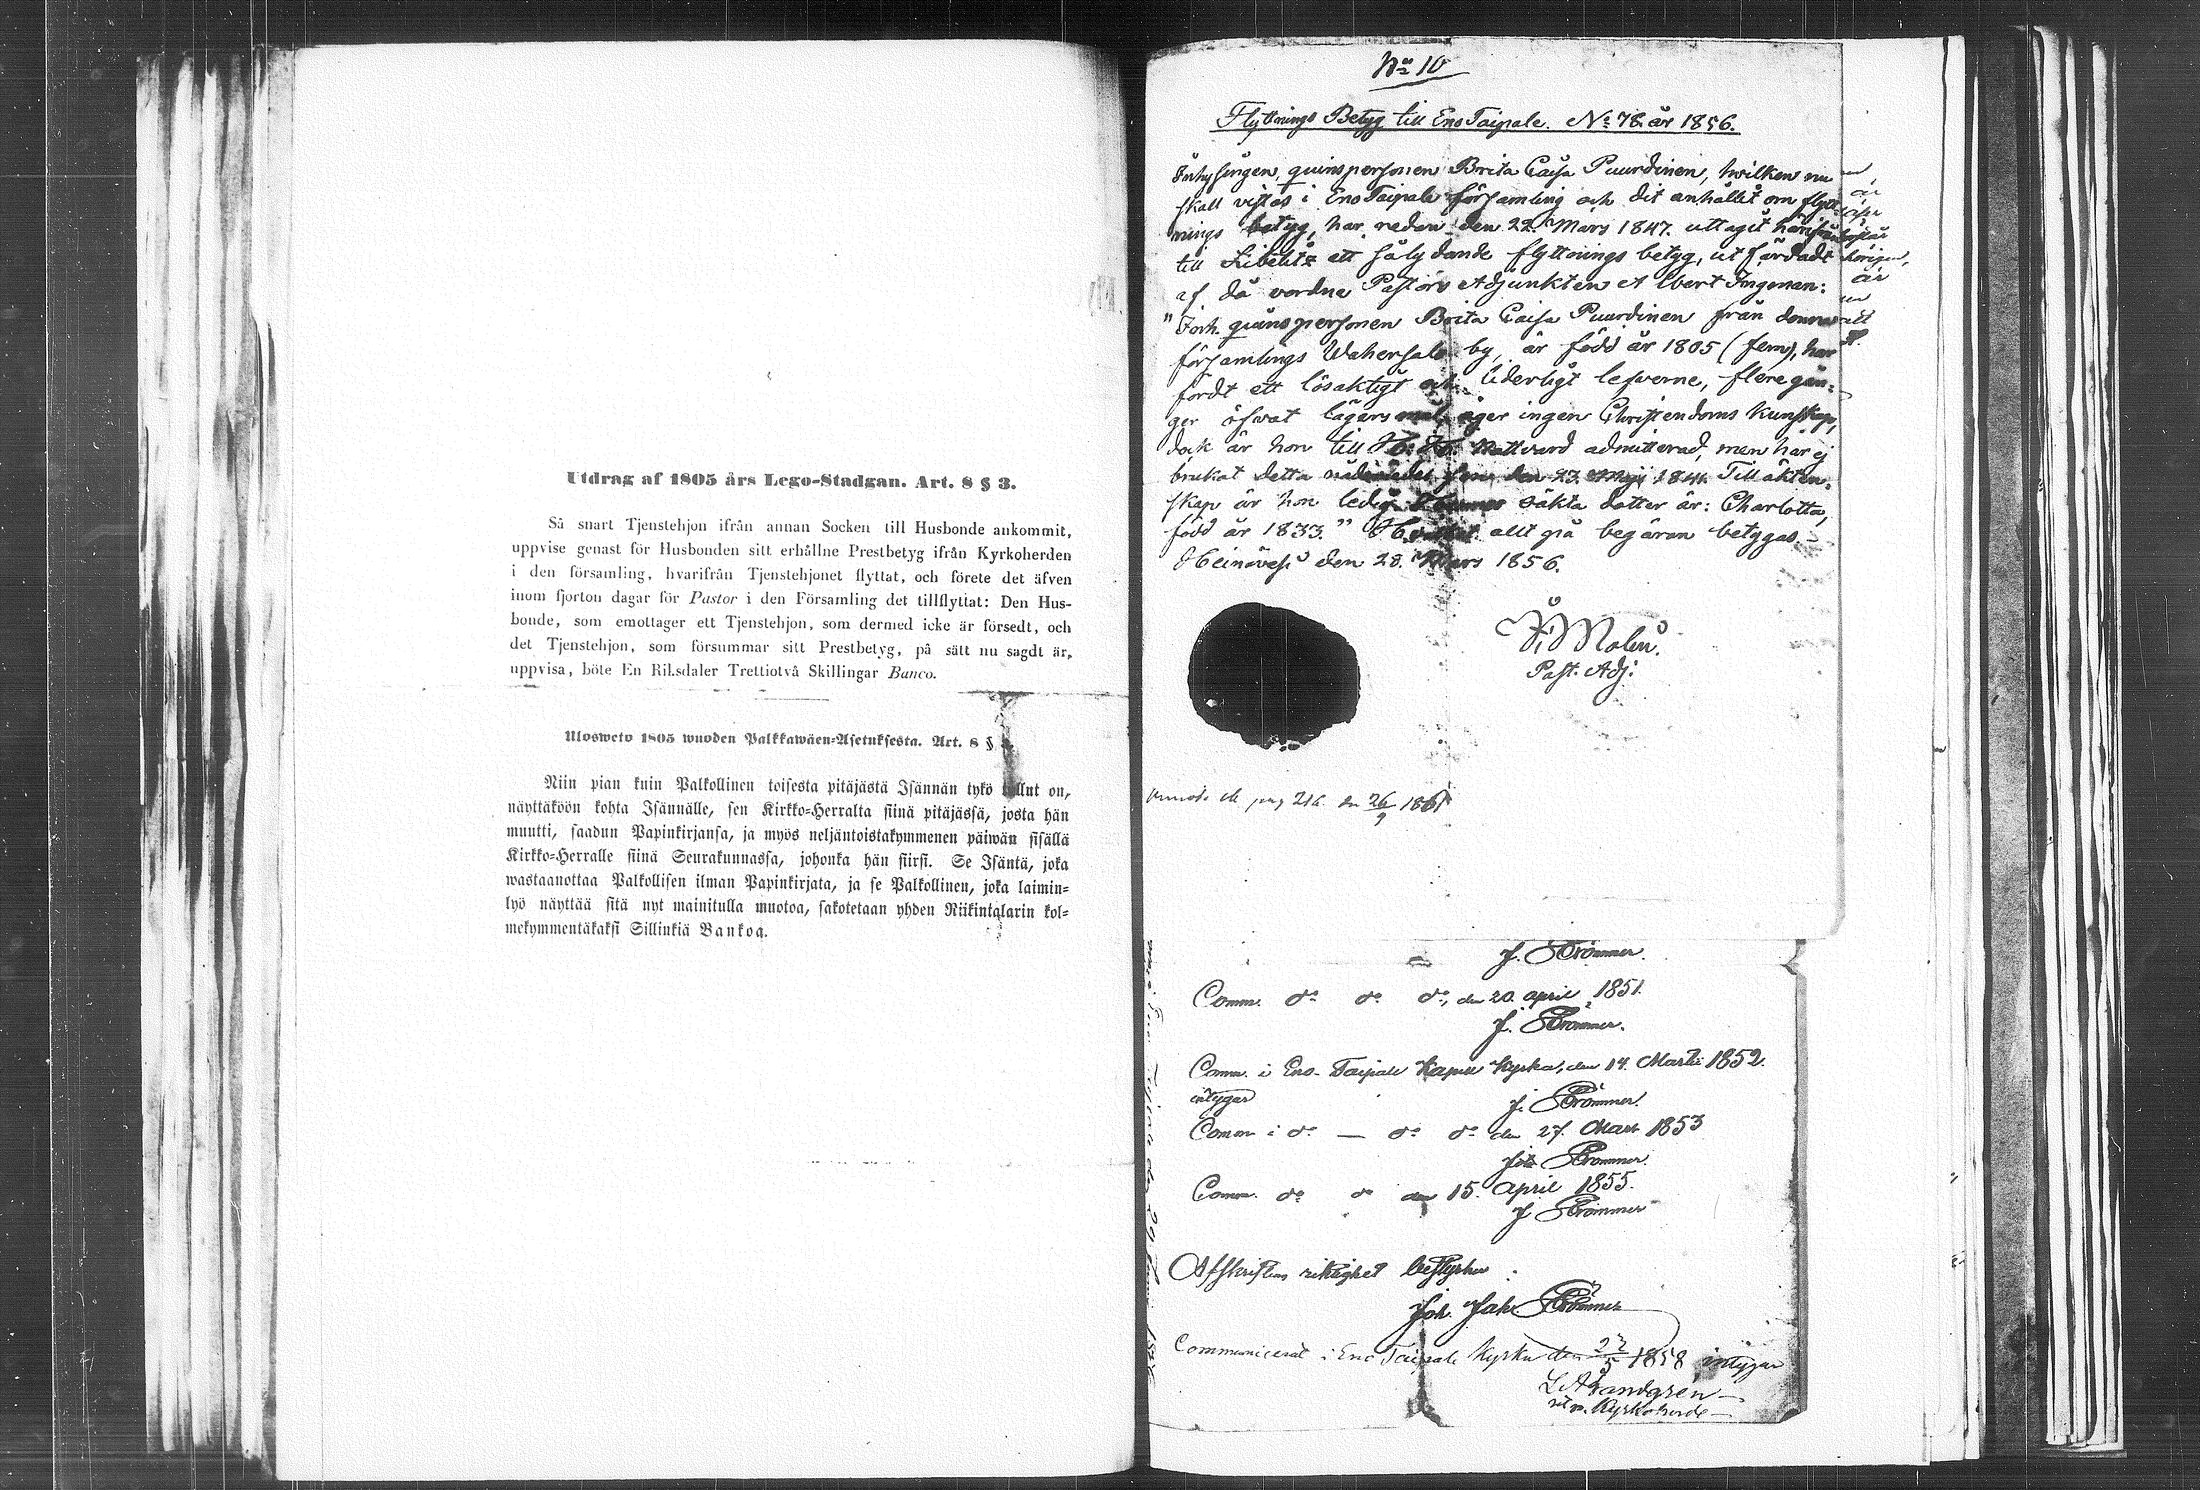 Utdrag af 1805 års Lego-Stadgan. Art. 8 § 3.
Så snart Tjenstehjon ifrån annan Socken till Husbonde ankommit,
uppvise genast för Husbonden sitt erhållne Prestbetyg ifrån Kyrkoherden
i den församling, hvarifrån Tjenstehjonet flyttat, och förete det äfven
inom fjorton dagar för Pastor i den Församling det tillflyttat: Den Hus-
bonde, som emottager ett Tjenstehjon, som dermed icke är försedt, och
det Tjenstehjon, som försummar sitt Prestbetyg, på sätt nu sagdt är,
uppvisa, böte En Riksdaler Trettiotvå Skillingar Banco.
Ulosweto 1805 wuoden Palkkawäen-Asetuksesta. Art. 8 §
Niin pian kuin Palkollinen toisesta pitäjästä Isännän tykö tullut on,
näyttäköön kohta Isännälle, sen Kirkko-Herralta siinä pitäjässä, josta hän
muutti, saadun Papinkirjansa, ja myös neljäntoistakymmenen päiwän sisällä
Kirkko-Herralle siinä Seurakunnassa, johonka hän siirsi. Se Isäntä, joka
wastaanottaa Palkollisen ilman Papinkirjata, ja se Palkollinen, joka laimin-
lyö näyttää sitä nyt mainitulla muotoa, sakotetaan yhden Riikintalarin kol-
mekymmentäkaksi Sillinkiä Bankoa.
No 10
Flyttnings Betyg till Eno Taipale. No 78 år 1856.
Inhysingen, qvinspersonen Brita Caisa Puurdinen, hvilken nu
skall vistas i Eno Taipale församling och dit anhållit om flytt-
nings betyg, har redan den 22. Mars 1847. uttagit härifrån
till Libelitz ett så lydande flyttnings betyg, utfärdadt
af då vordne Pastors Adjunkten Albert Ingman:
"Inh. qvinspersonen Brita Caisa Puurdinen från denna
församlings Wahersalo by, är född år 1805 (fem), har
fördt ett lösaktigt och liderligt lefverne, flere gån-
ger öfvat lägersmål, äger ingen Christendoms kunskap,
dock är hon till H. H. Nattvard admitterad, men har ej
brukat detta nådemedel sen den 23. Maji 1841. Till äkten-
skap är hon ledig. Hennes oäkta dotter är: Charlotta,
född år 1833." Hvilket allt på begäran betygas.
Heinävesi den 28. Mars 1856.
Malin.
Past. Adj:
pag 216 den 26/9 1861
J. Strömmer.
Comm. do do do, den 20. april 1851.
J. Strömmer.
Comm. i Eno-Taipale Kapell Kyrka, den 14. Martii 1852.
intygar
J. Strömmer.
Comm i do — do do den 27. Mart 1853
Strömmer.
Comm. do do den 15. April 1855.
J Strömmer
Afskriftens riktighet bestyrker:
Joh. Jak. Strömmer
Communicerat i Eno Taipale Kyrka den 23/5 1858 intygar
L A Sandgren
Kyrkoherde